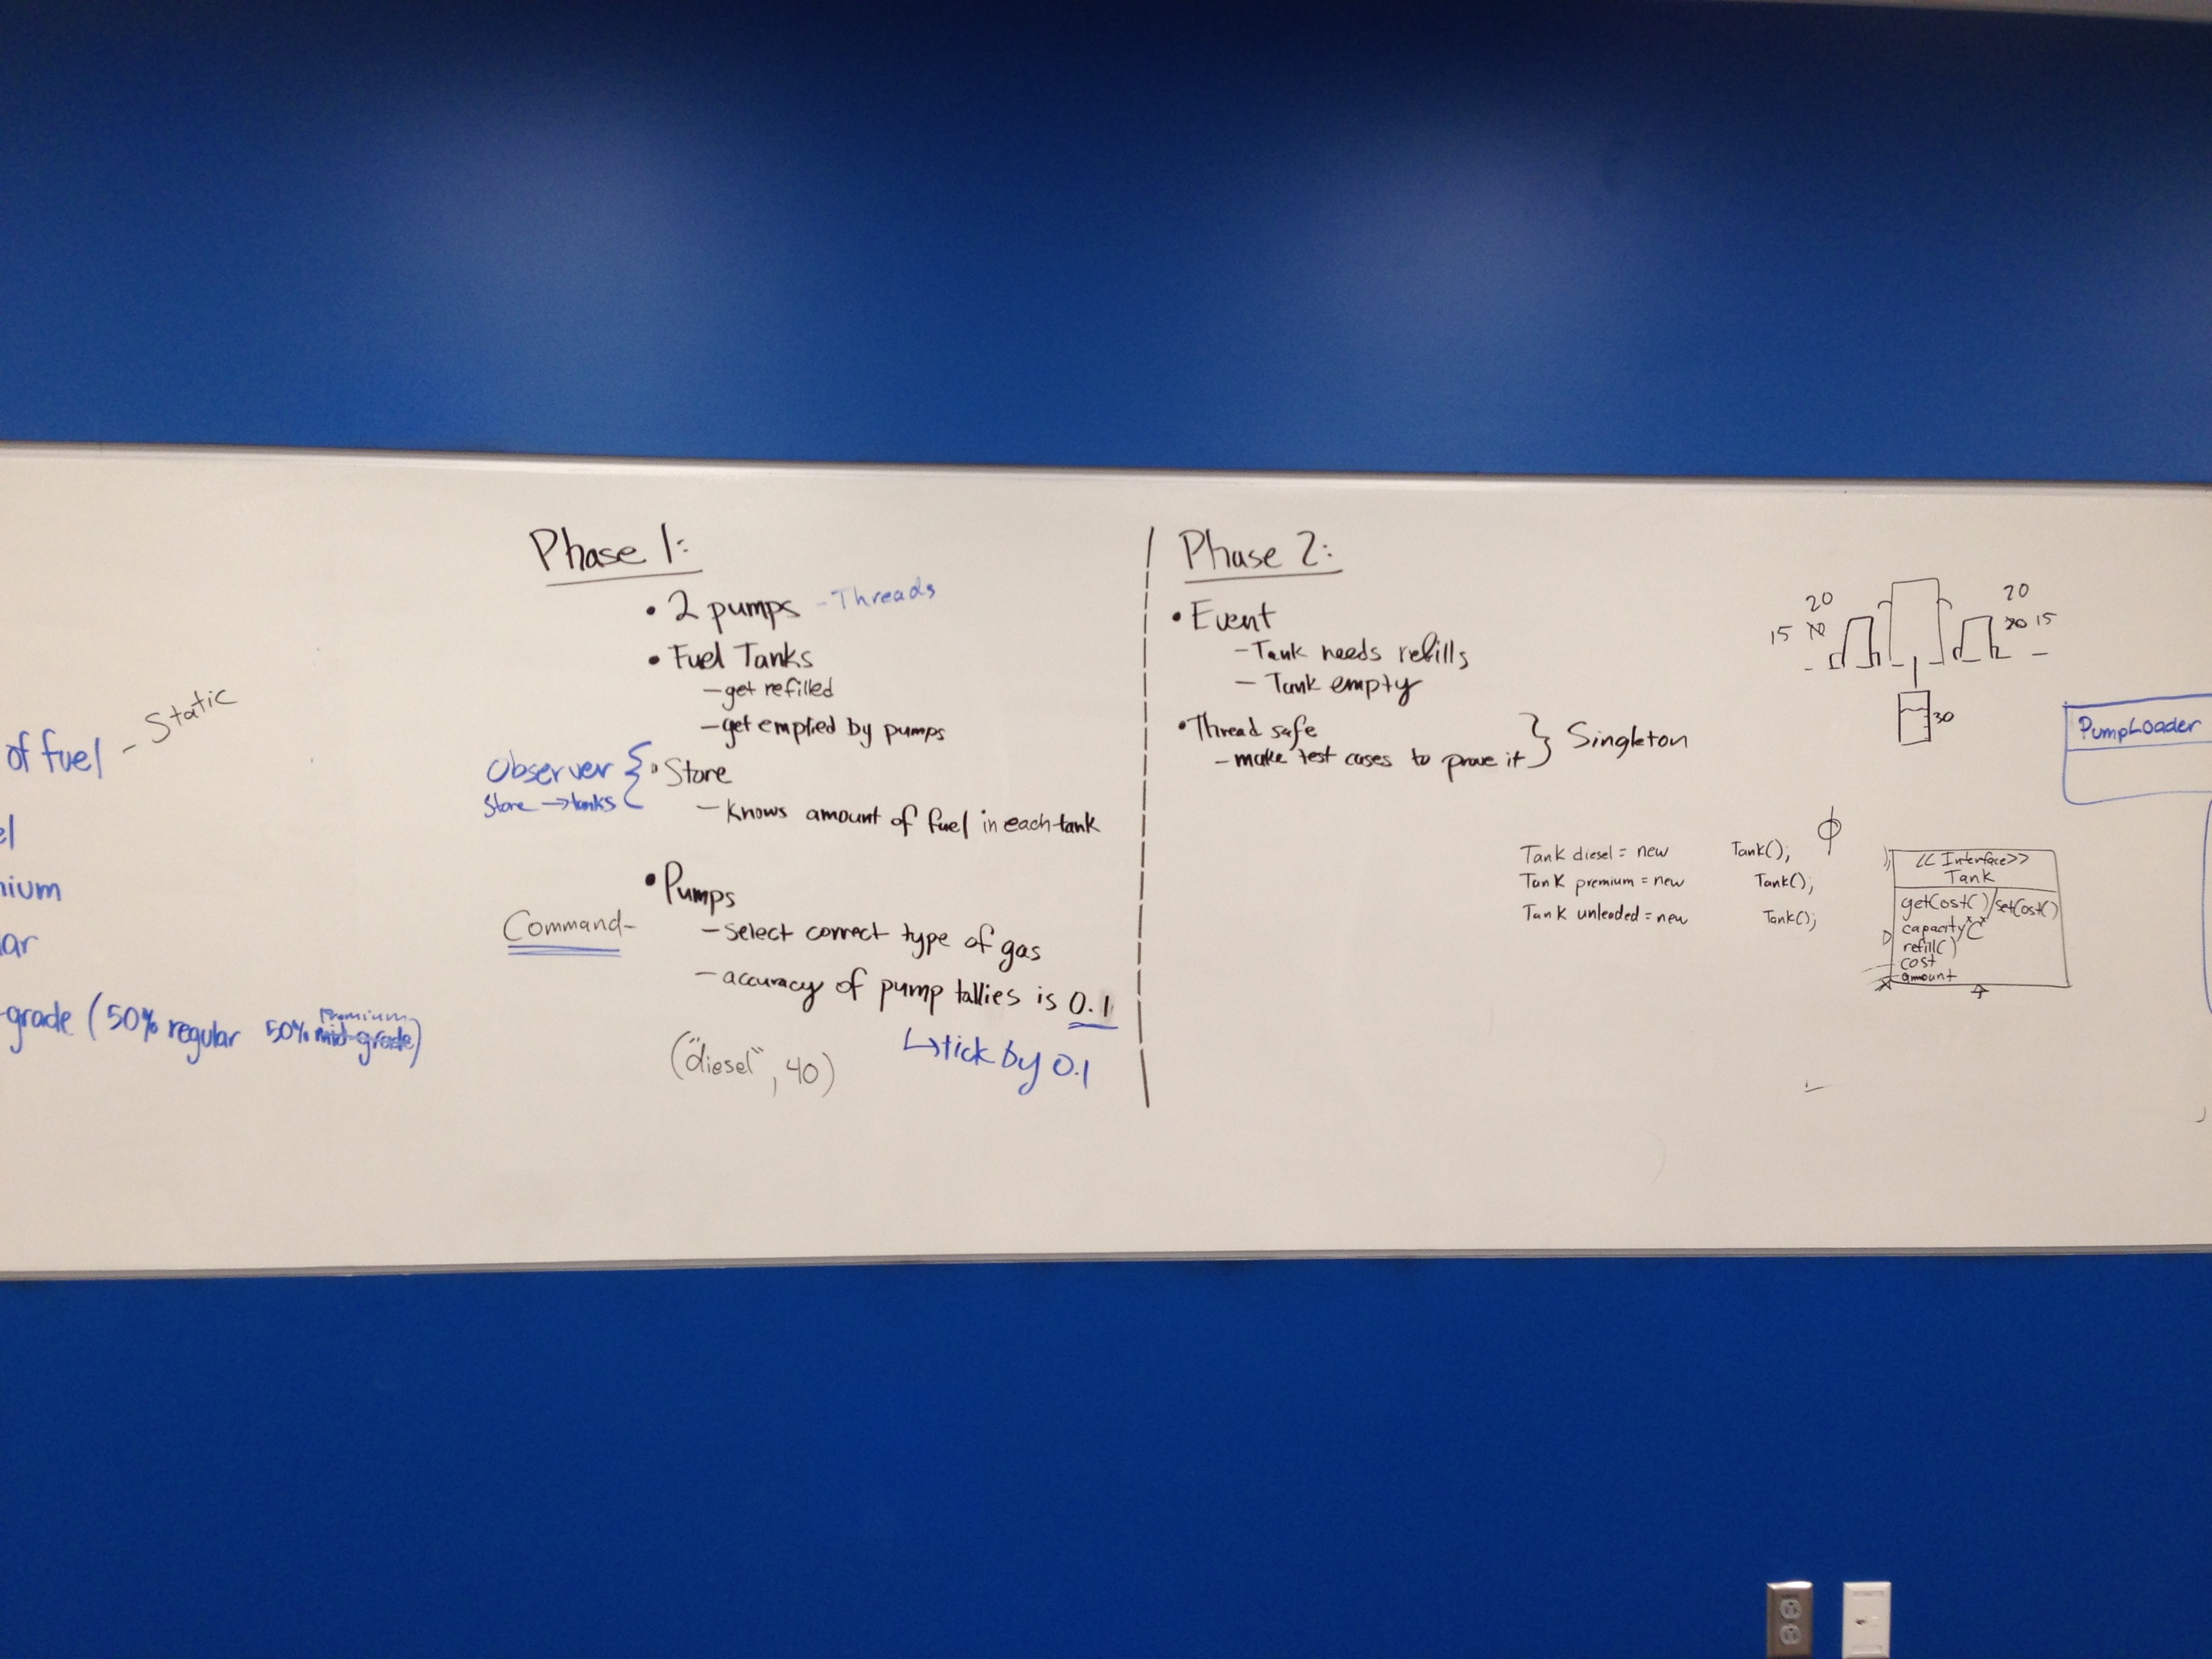 of fuel - Static
el
nium
ar
-grade (50% regular 50% mid-grade)
Premium
Phase 1:
• 2 pumps - Threads
• Fuel Tanks
- get refilled
- get emptied by pumps
Observer { • Store
Store → tanks
- Knows amount of fuel in each tank
• Pumps
Command-
- select correct type of gas
- accuracy of pump tallies is 0.1
↳ tick by 0.1
("diesel", 40)
Phase 2:
• Event
- Tank needs refills
- Tank empty
• Thread safe
- make test cases to prove it } Singleton
20
15
20
15
30
PumpLoader
Tank diesel = new Tank();
Tank premium = new Tank();
Tank unleaded = new Tank();
<< Interface >>
Tank
getCost()/setCost()
capacity
refill()
cost
amount